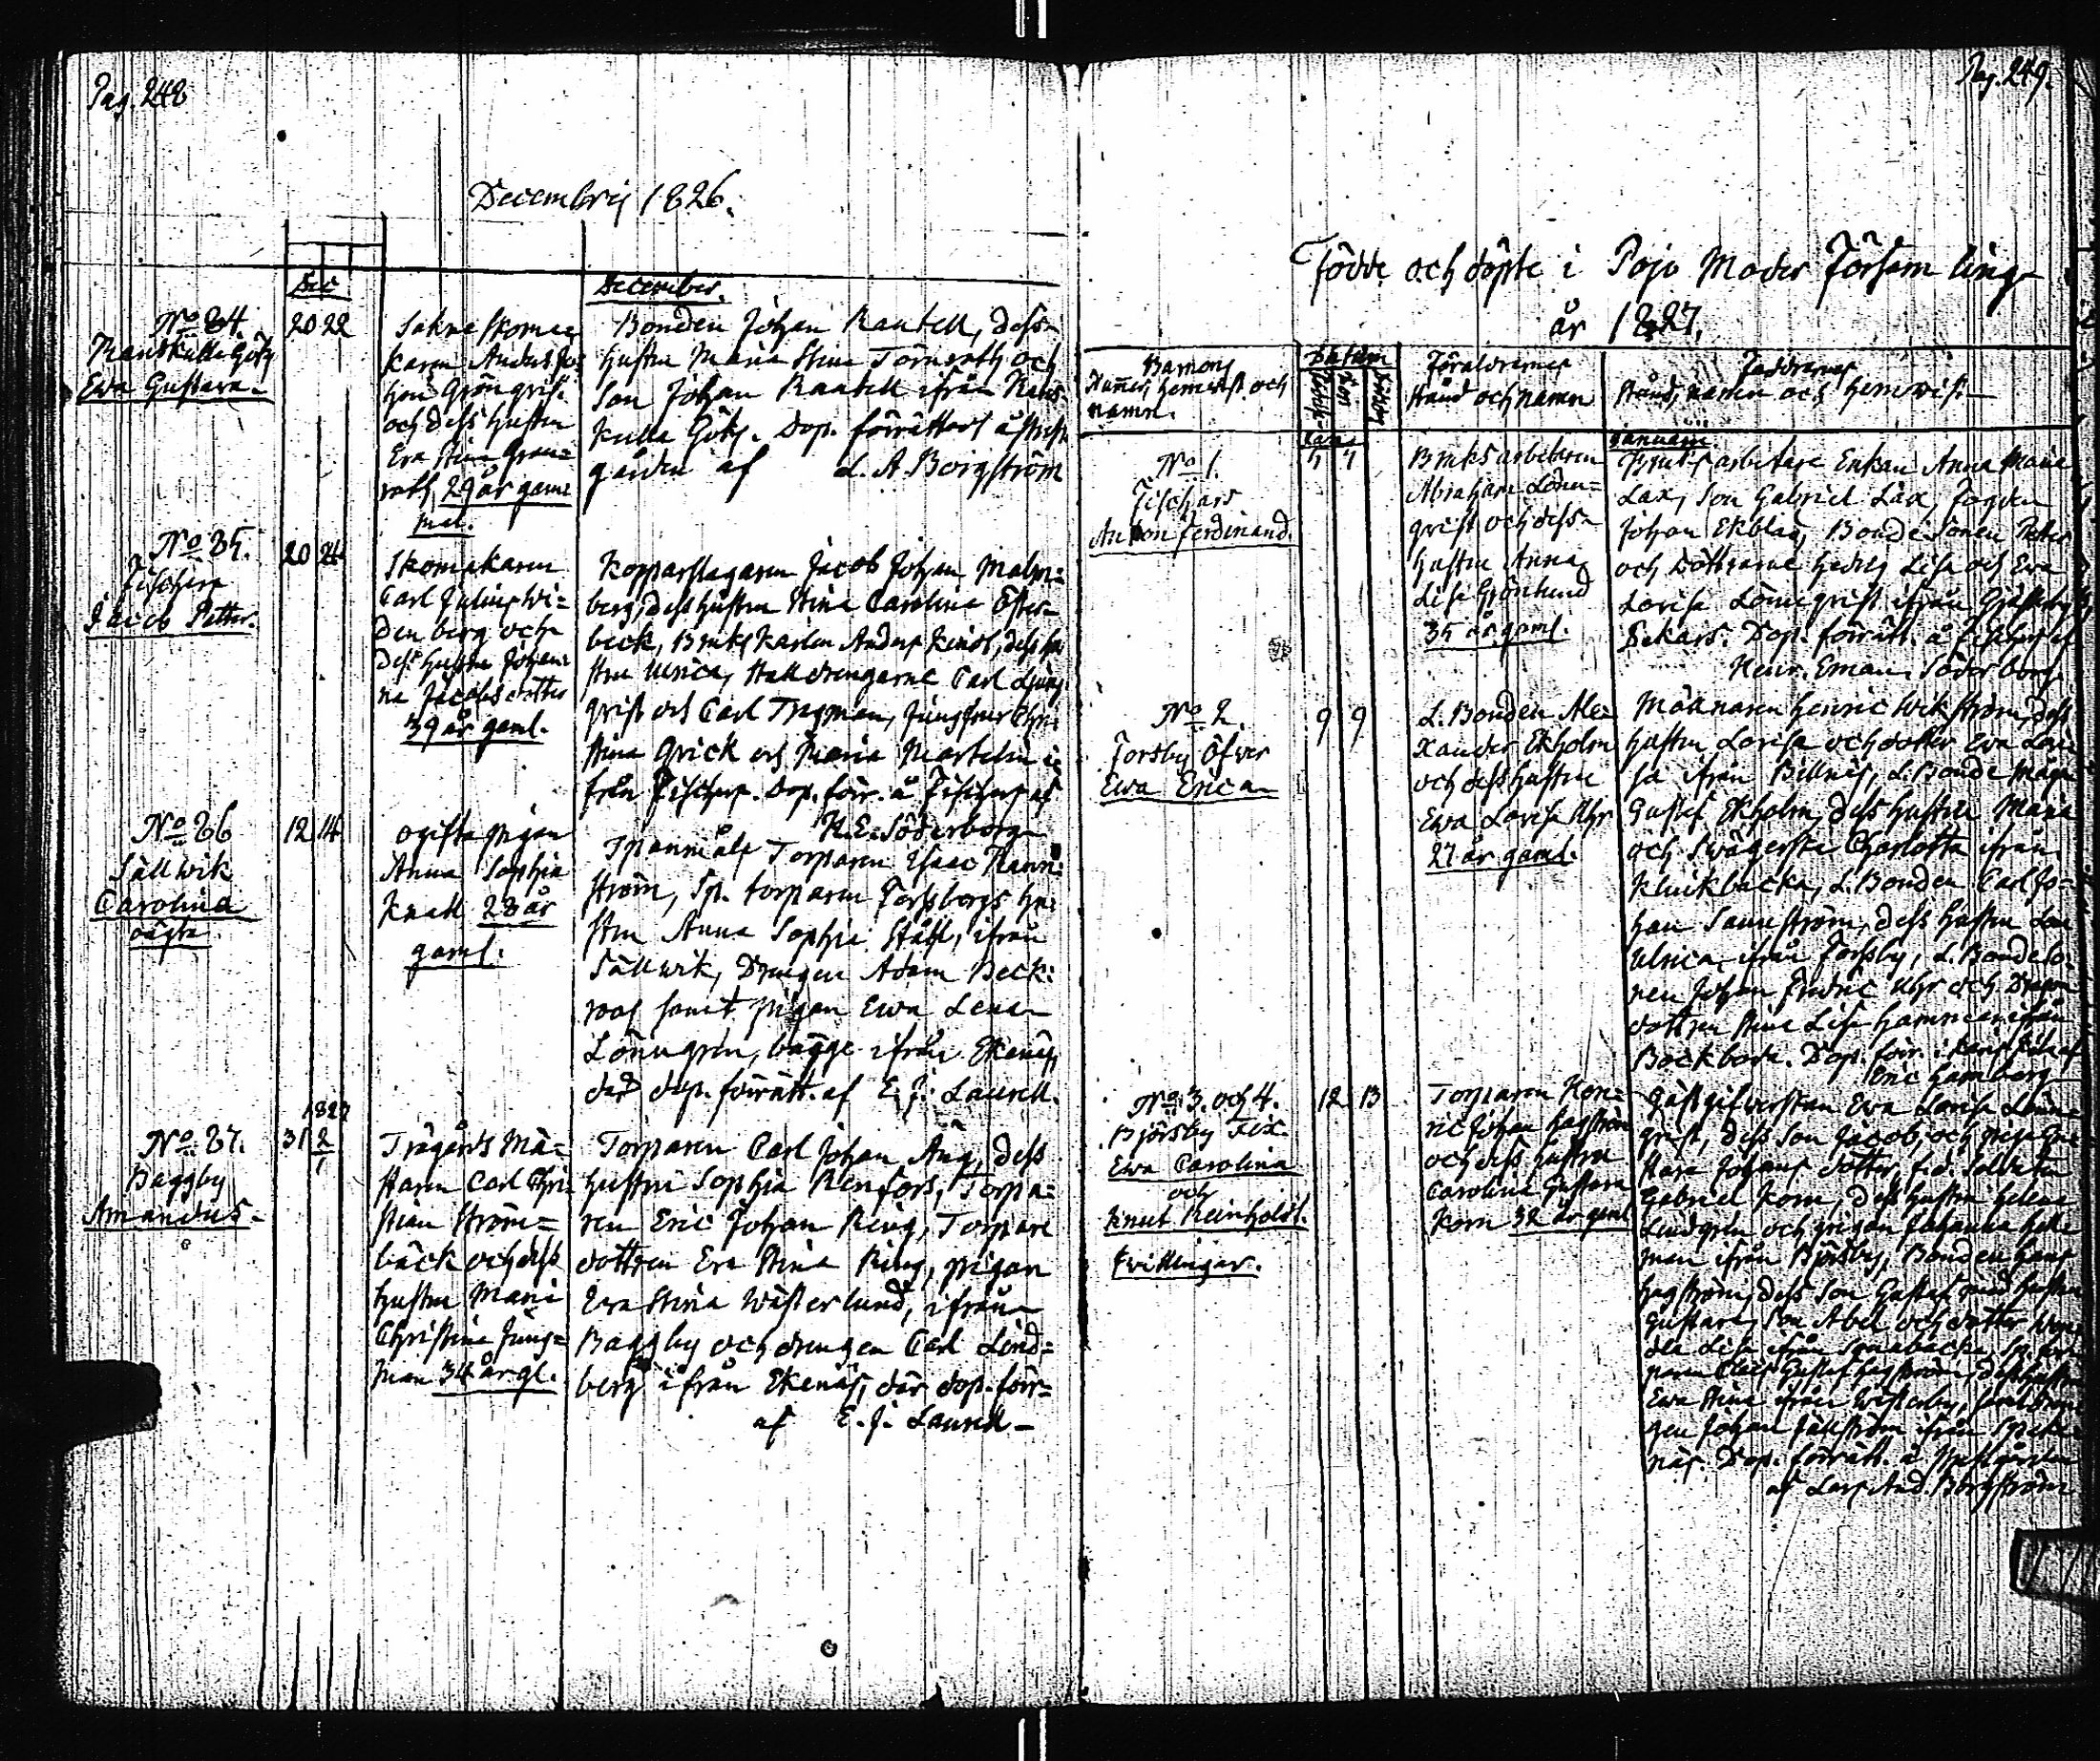 Pag. 248
Decembris 1826.
Dec
December.
No 34.
Ranskulla Göks
Ewa Gustava
20 22
Sokneskoma-
karen Anders Jo-
han Gröngvist
och dess hustru
Eva Stina Gran-
roth 29 år gam-
mal.
Bonden Johan Rantell, dess
hustru Maria Stina Törnroth och
Son Johan Rantell ifrån Rans-
kulla Göks. Dop. förrättades å Prest-
gården af L. A. Borgström
No 35.
Fischars
Jacob Petter.
20 24
Skomakaren
Carl Julius Wi-
denberg och
dess hustru Johan-
na Jacobsdotter
39 år gaml.
Kopparslagaren Jacob Johan Malm-
berg, dess hustru Stina Carolina Öster-
beck, Bruks Karlen Anders, dess hu-
stru Ulrica, Stalldrengarne Carl Ljung-
qvist och Carl Tregman, Jungfrur Chri-
stina Qvick och Maria Martelin i-
från Fischars. Dop. förr. å Fischars af
H. E. Söderborg
No 36
Sällwik
Carolina
oägta
12 14
ogifta pigan
Anna Sophia
Knall 23 år
gaml.
Spanmåls Torparen Isaac Rann-
ström, Sp. torparen Forsbergs hu-
stru Anna Sophia Ståhl, ifrån
Sällwik, Drengen Adam Beck-
roos samt pigan Ewa Lena
Lönngren, bägge ifrån Ekenäs,
der dop. förrätt. af E. J. Laurell.
No 37.
Baggby
Amandus
1827
31 2/1
Trägårds Mä-
staren Carl Chri-
stian Ström-
bäck och dess
hustru Maria
Christina Jung-
man 34 år gl.
Torparen Carl Johan Äng, dess
hustru Sophia Renfors, Torpa-
ren Eric Johan Ring, Torpare
dottren Eva Stina Ring, pigan
Eva Stina Wästerlund, ifrån
Baggby och drengen Carl Lind-
berg ifrån Ekenäs, där dop. förr-
af E. J. Laurell
Pag. 249.
Födde och döpte i Pojo Moder Församling
år 1827.
Barnens
Numer, hemwist och
namn.
Datum
Föräldrarnes
Stånd och namn
Faddrarnes
Stånd, namn och hemwist
Januarii
No 1.
Fischars
Anton Ferdinand.
Bruksarbetaren
Abraham Lönn-
qvist och dess
hustru Anna
Lisa Grönlund
35 år gaml.
Bruksarbetare Enkan Anna Maria
Lax, Son Gabriel Lax, Fogden
Johan Ekblad, Bonde Sonen Petter
och Döttrarne Hedvig Lisa och Eva
Lovisa Lönnqvist ifrån
Dop. förrätt. å Fischars af
Henr. Eman. Söderborg
No 2.
Forsby Öfver
Ewa Erica
9 9
L. Bonden Ale-
xander Ekholm
och dess hustru
Ewa Lovisa Uhr
27 år gaml.
Mälnaren Henric Wikström, dess
hustru Lovisa och dotter Ewa Lovi-
sa ifrån Billnäs, L. Bonde Mågen
Gustaf Ekholm, dess hustru Maria
och Swägerska Charlotta ifrån
Klinkbacka, L. Bonden Carl Jo-
han Sannström, dess hustru Lou.
Ulrica ifrån Forsby, L. Bondeso-
nen Johan Fredric Uhr och Dragon
dottren Stina Lisa ifrån
Bockboda. Dop. förr. i af
Eric Hamberg
No 3. och 4.
Björsby Fix
Ewa Carolina
och
Knut Reinhold.
Tvillingar.
12 13
Torparen Hen-
ric Johan Hagström
och dess hustru
Carolina Gustava
Korn 32 år gaml
Gästgifverskan Ewa Lovisa Lönn-
qvist, dess Son Jacob, och pigan Gu-
stava Johans dotter, f.d. Soldaten
Gabriel Korn, dess hustru Helena
Lindgren och pigan Johanna Hell-
man ifrån Björsby, Bonden Hans
Hagström, dess Son Gustaf med hustru
Gustava, Son Abel och dotter Wen-
dla Lisa ifrån Sonabacka, Sp. tor-
paren Gustaf Hagström, dess hustru
Ewa Stina ifrån Westerby, samt dren-
gen Johan Fällström ifrån
näs. Dop. förrätt. å Prestgården
af Lars And. Borgström